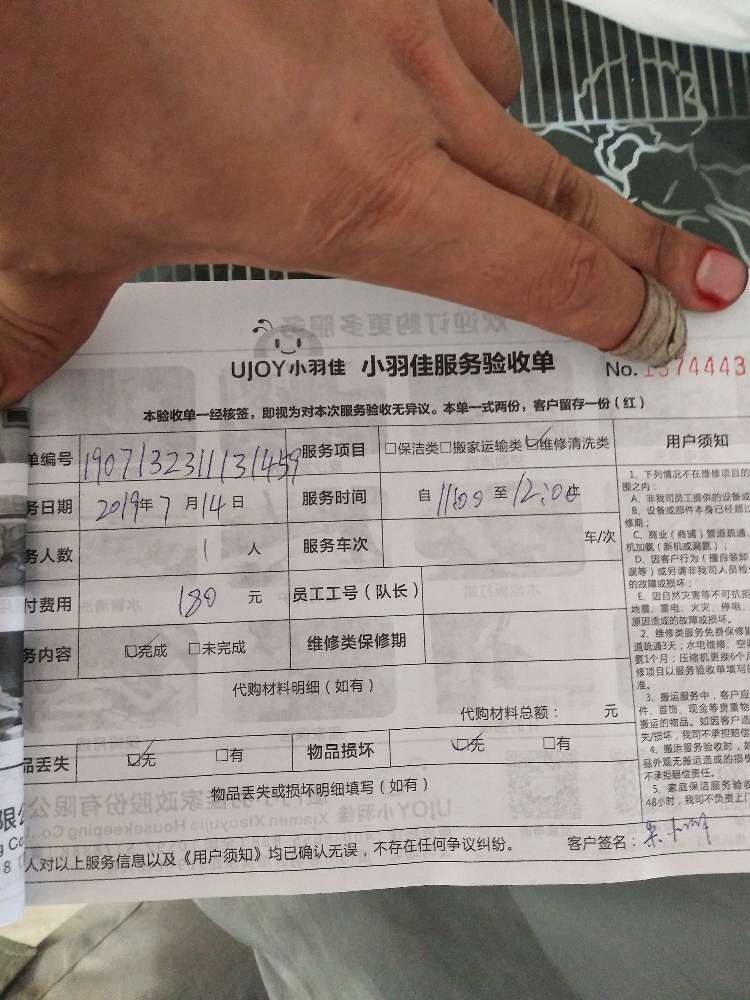 UJOY小羽佳 小羽佳服务验收单 No. 1374443
本验收单一经核签，即视为对本次服务验收无异议。本单一式两份，客户留存一份（红）
单编号 190713231131459 服务项目 □保洁类□搬家运输类☑维修清洗类 用户须知
务日期 2019年7月14日 服务时间 自 11:00 至 12:00
务人数 1 人 服务车次 车/次
付费用 180 元 员工工号（队长）
务内容 ☑完成 □未完成 维修类保修期
代购材料明细（如有）
代购材料总额： 元
品丢失 ☑无 □有 物品损坏 ☑无 □有
物品丢失或损坏明细填写（如有）
人对以上服务信息以及《用户须知》均已确认无误，不存在任何争议纠纷。 客户签名：
1、下列情况不在维修项目的
围之内：
A、非我司员工提供的设备或
B、设备或部件本身已经超过
修期；
C、商业（商铺）管道疏通、
机加氨（新机或漏氨）；
D、因客户行为（擅自装卸
误等）或另请非我司人员检
的故障或损坏；
E、因自然灾害等不可抗拒
地震、雷电、火灾、停电、
原因造成的故障或损坏。
2、维修类服务免费保修
道疏通3天；水电维修、空
氨1个月；压缩机更换6个月
修项目以服务验收单填写的
准。
3、搬运服务中，客户应
件、首饰、现金等贵重物
搬运的物品。如因客户造
失/损坏，我司不承担赔偿
4、搬运服务验收时，如
品外观无搬运造成的损
不承担赔偿责任。
5、家庭保洁服务验收
48小时，我司不负责上门